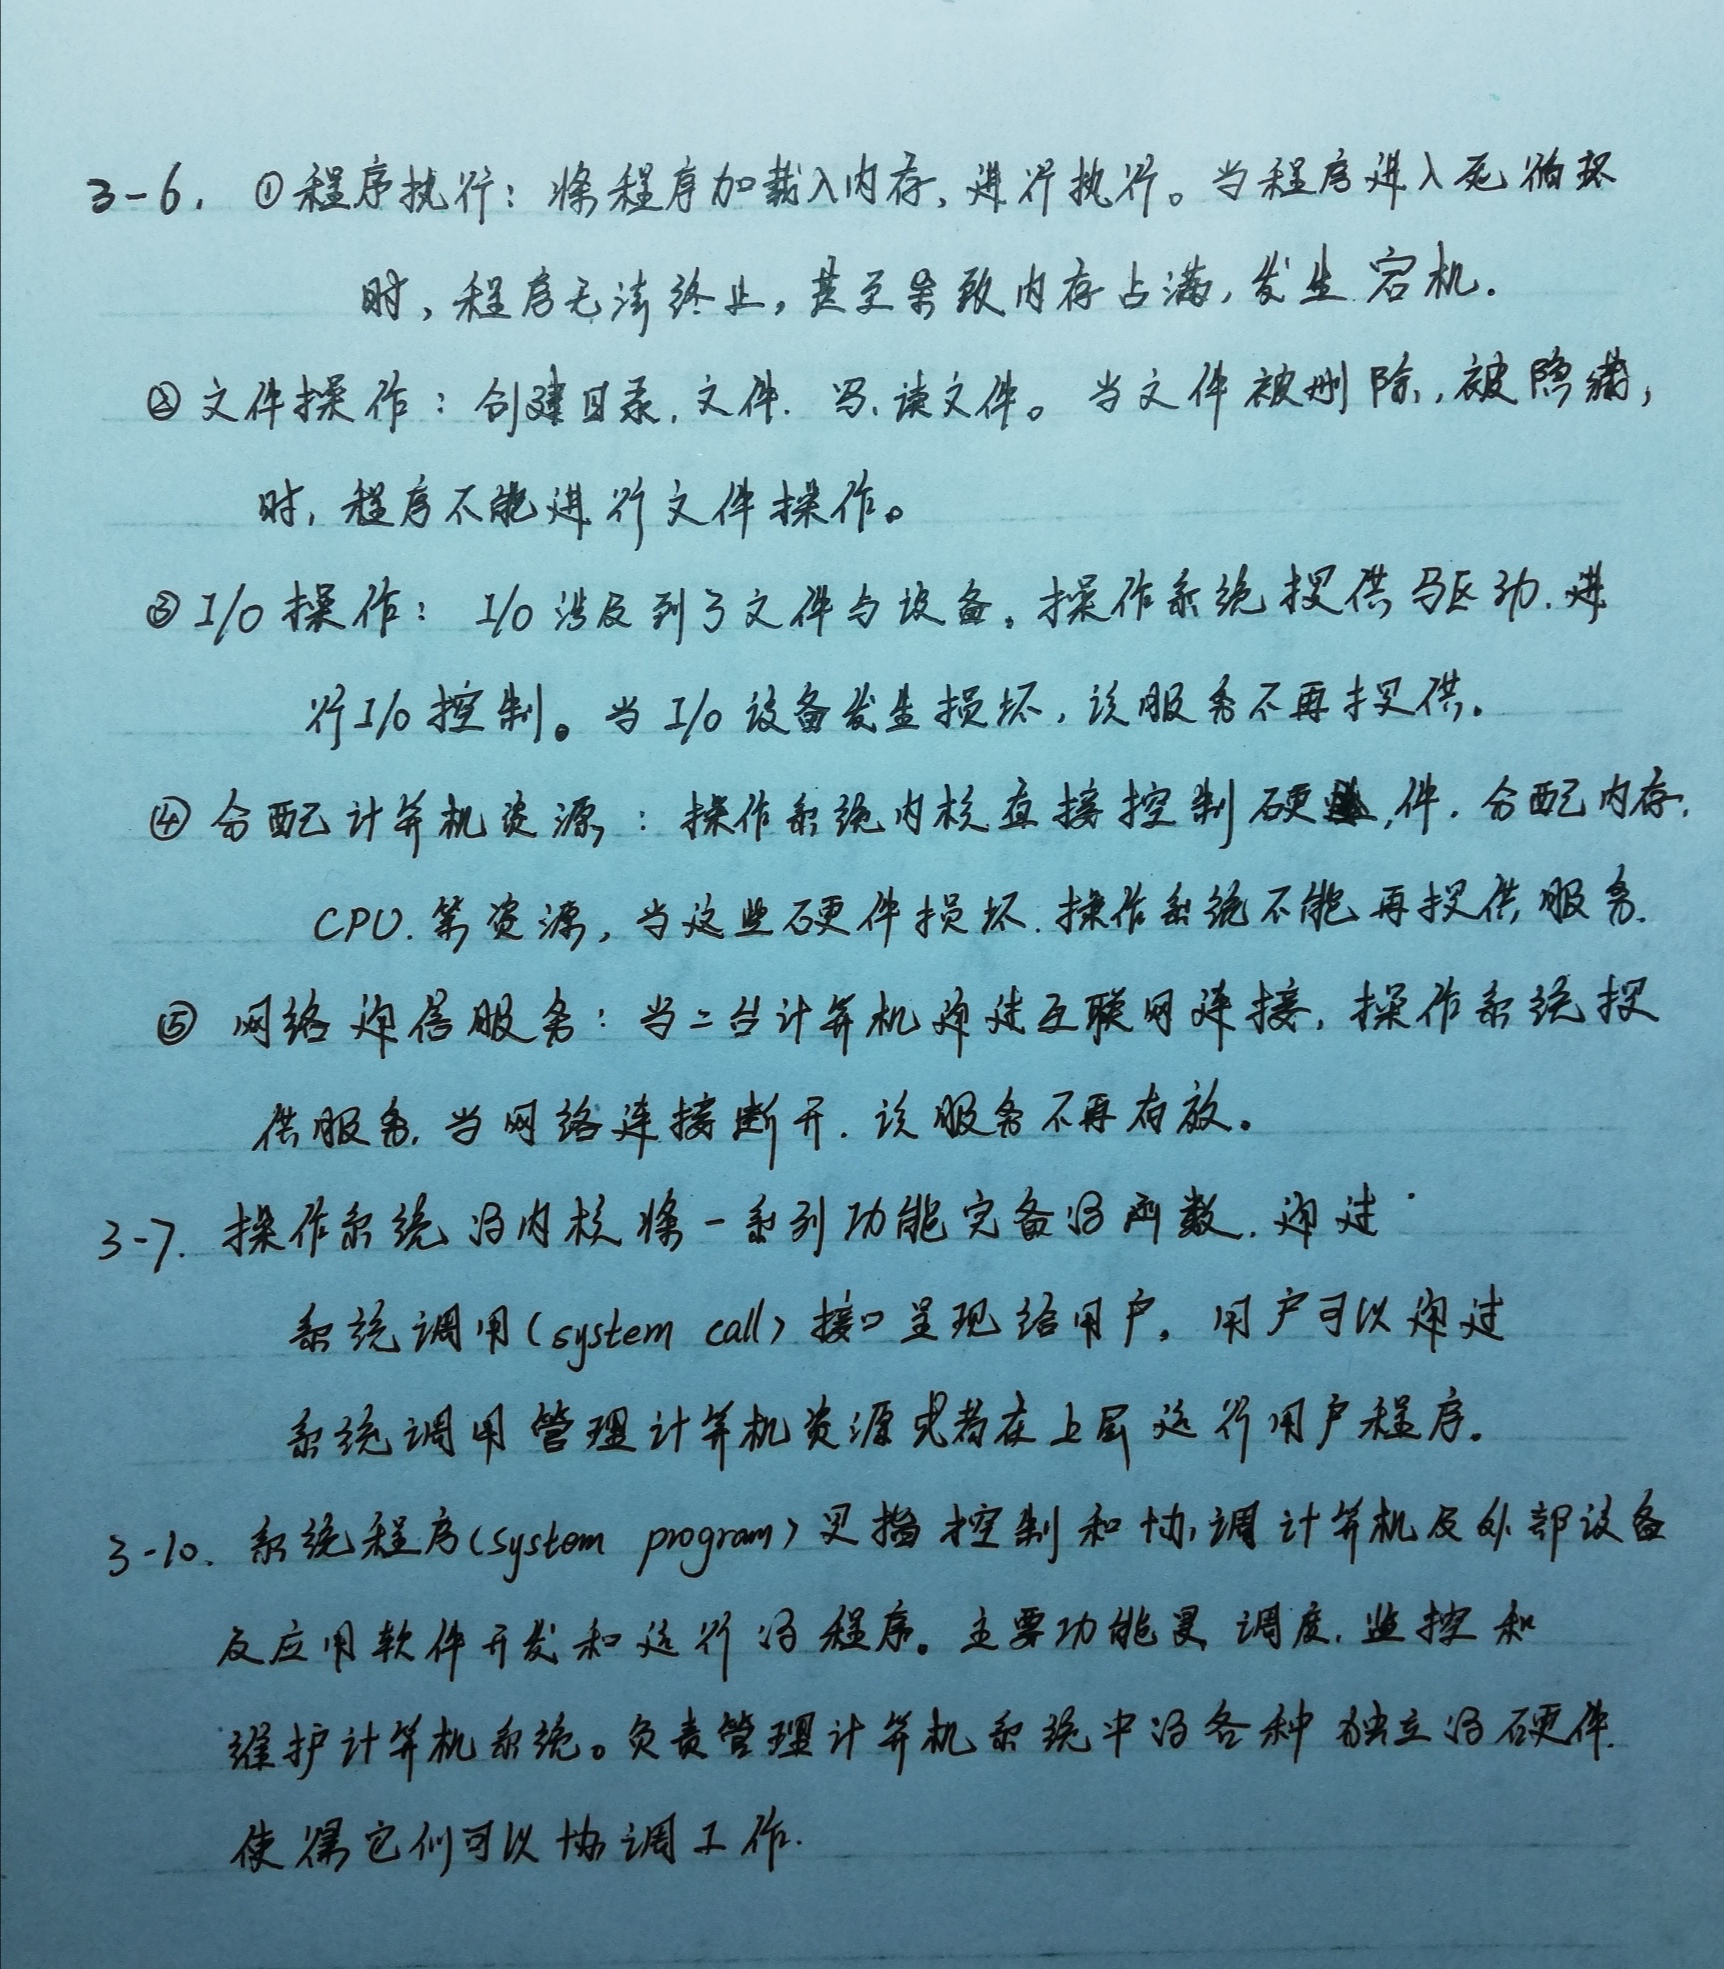 3-6. ①程序执行：将程序加载入内存，进行执行。当程序进入死循环
时，程序无法终止，甚至导致内存占满，发生宕机.
②文件操作：创建目录，文件．写、读文件。当文件被删除，被隐藏，
时，程序不能进行文件操作。
③I/O操作： I/O涉及到了文件与设备。操作系统提供驱动．进
行I/O控制。当I/O设备发生损坏，该服务不再提供.
④分配计算机资源：操作系统内核直接控制硬件．分配内存．
CPU．等资源，当这些硬件损坏．操作系统不能再提供服务.
⑤ 网络通信服务：当二台计算机通过互联网连接，操作系统提
供服务，当网络连接断开．该服务不再有效。
3-7. 操作系统的内核将一系列功能完备的函数．通过
系统调用(system call)接口呈现给用户。用户可以通过
系统调用管理计算机资源或者在上层运行用户程序.
3-10. 系统程序(system program)是指控制和协调计算机及外部设备
及应用软件开发和运行的程序。主要功能是调度．监控和
维护计算机系统。负责管理计算机系统中的各种独立的硬件.
使得它们可以协调工作.